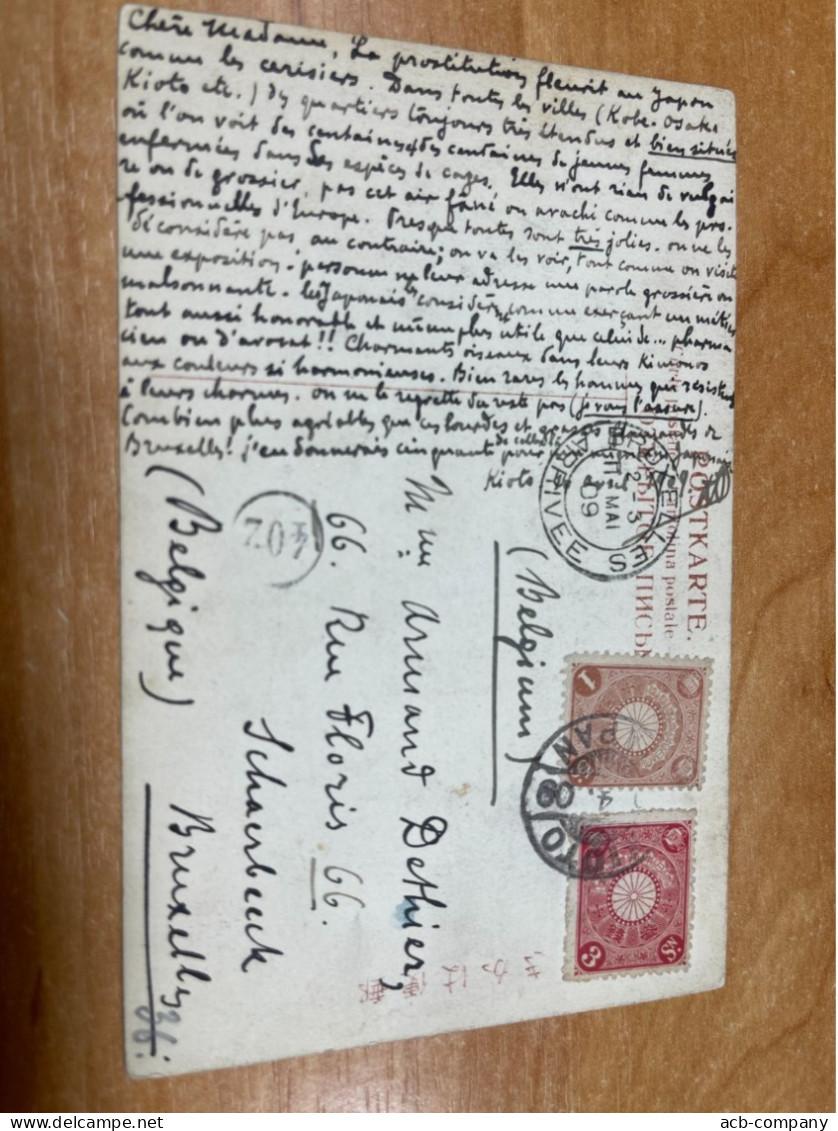 Chère Madame, La prostitution fleurit au Japon
comme les cerisiers. Dans toutes les villes (Kobe. Osaka
Kioto etc.) des quartiers toujours très étendus et bien situés
où l'on voit des centaines et des centaines de jeunes femmes
enfermées dans des espèces de cages. Elles n'ont rien de vulgai
re ou de grossier, pas cet air fané ou avachi comme les pro-
fessionnelles d'Europe. Presque toutes sont très jolies. on ne les
déconsidère pas, au contraire; on va les voir, tout comme on visite
une exposition. personne ne leur adresse une parole grossière ou
malsonnante. les Japonais les considèrent comme exerçant un métier
tout aussi honorable et même plus utile que celui de... pharma
cien ou d'avocat!! Charmants oiseaux dans leurs Kimonos
aux couleurs si harmonieuses. Bien rares les hommes qui résistent
à leurs charmes. on ne le regrette du reste pas (je vous l'assure).
Combien plus agréables que ces lourdes et grasses de
Bruxelles! j'en donnerais cinquante pour
Kioto avril
POSTKARTE.
postale
SCHAERBEEK
ARRIVEE
2-3
MAI
09
402
(Belgium)
Mme Armand Dethier,
66. Rue Floris 66.
Schaerbeek
Bruxelles
36.
(Belgique)
1
PAN
09
4
OTO
3
acb-company